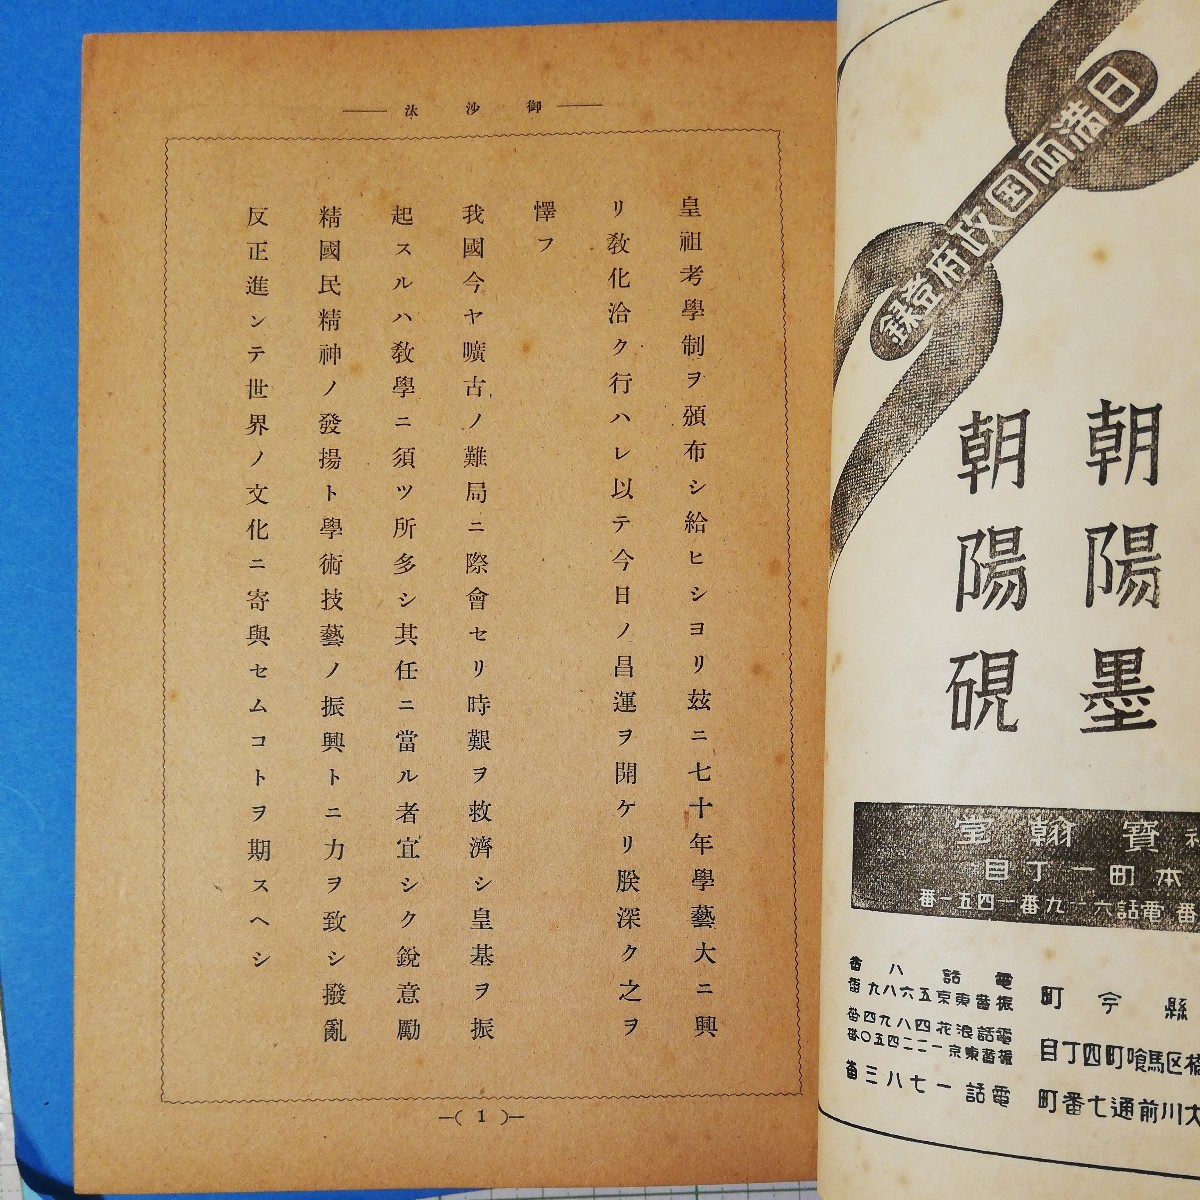 日満両国政府登録
朝陽墨
朝陽硯
寶翰堂
本町一丁目
電話六一九番一四五一番
縣今町
電話八番
振替東京五六八九番
橋区馬喰町四丁目
電話浪花四八九四番
振替東京一二二四五〇番
大川前通七番町
電話一七八三番
御沙汰
皇祖考學制ヲ頒布シ給ヒシヨリ玆ニ七十年學藝大ニ興
リ敎化洽ク行ハレ以テ今日ノ昌運ヲ開ケリ朕深ク之ヲ
懌フ
我國今ヤ曠古ノ難局ニ際會セリ時艱ヲ救濟シ皇基ヲ振
起スルハ敎學ニ須ツ所多シ其任ニ當ル者宜シク銳意勵
精國民精神ノ發揚ト學術技藝ノ振興トニ力ヲ致シ撥亂
反正進ンテ世界ノ文化ニ寄與セムコトヲ期スヘシ
—( 1 )—